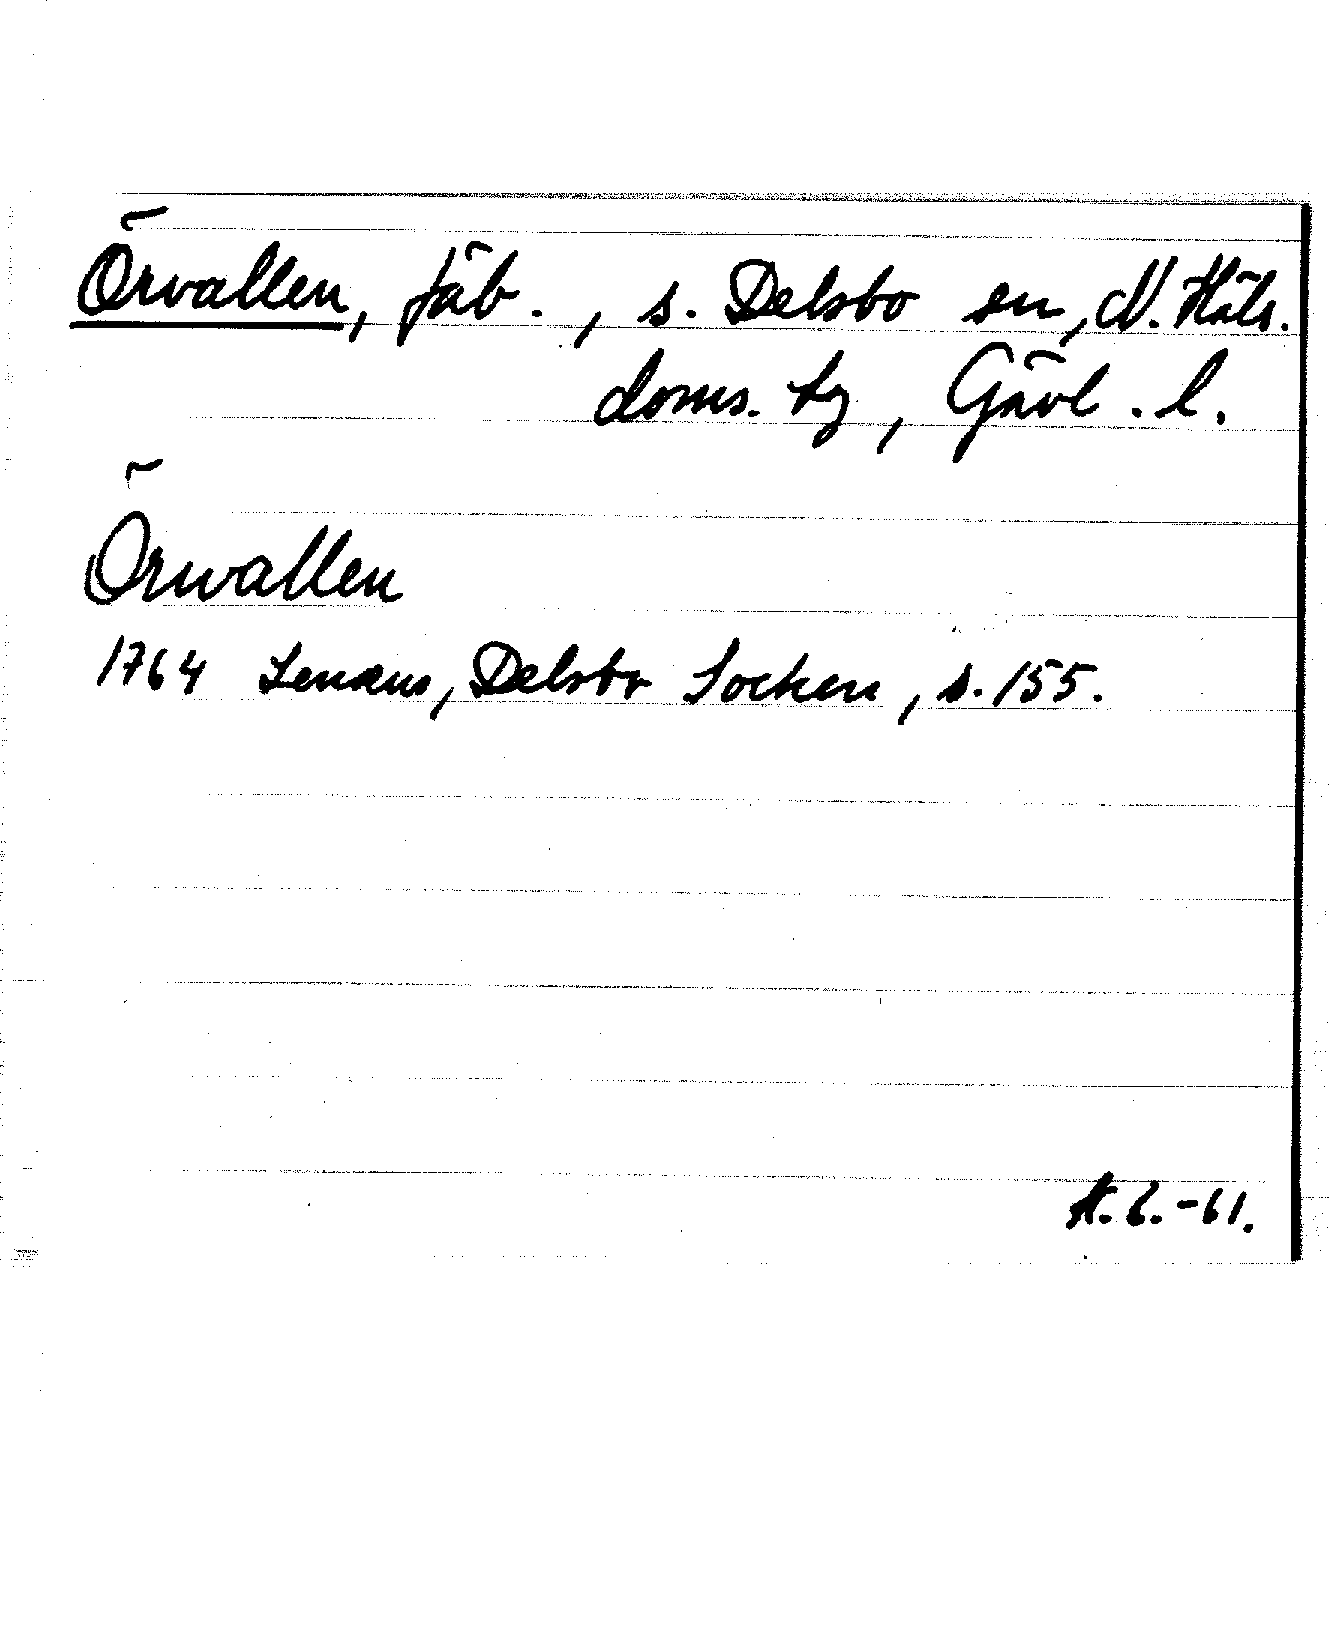 Örvallen, fäb., s. Delsbo sn, N. Häls.
doms. tg, Gävl. l.
Örwallen
1764 Lenæus, Delsbo Socken, s. 155.
-61.